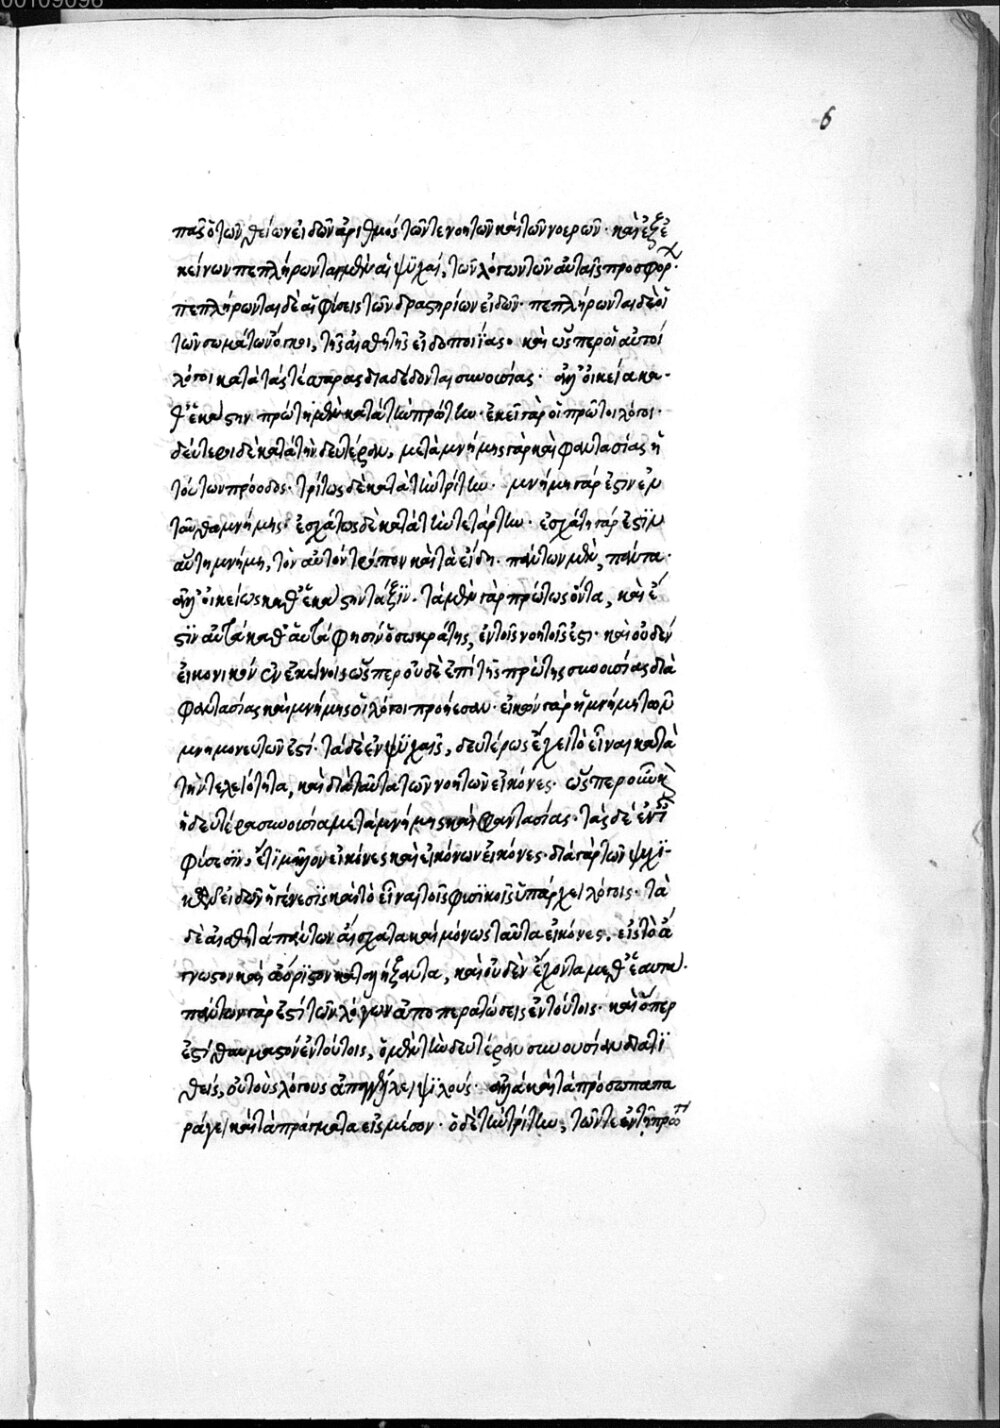 00109096
6
πᾶς ὁ τῶν θείων εἰδῶν ἀριθμός τῶν τε νοητῶν καὶ τῶν νοερῶν· καὶ ἐξ ἐ
κείνων πεπλήρωνται μὲν αἱ ψϋχαί, τῶν λόγων τῶν αὐταῖς προσφόρ·
πεπλήρωνται δὲ αἱ φύσεις τῶν δραστηρίων εἰδῶν· πεπλήρωνται δὲ οἱ
τῶν σωμάτων ὄγκοι, τῆς αἰσθητῆς εἰδοποιΐας· καὶ ὥσπερ οἱ αὐτοί
λόγοι κατὰ τὰς τέσσαρας διαδέδονται συνουσίας· ἀλλ' οἰκεία κα·
θ' ἑκάστην πρώτη μὲν κατὰ τὴν πρώτην· ἐκεῖ γὰρ οἱ πρῶτοι λόγοι·
δεύτεροι δὲ κατὰ τὴν δευτέραν, μετὰ μνήμης γὰρ καὶ φαντασίας ἡ
τούτων πρόοδος· τρίτως δὲ κατὰ τὴν τρίτην· μνήμη γάρ ἐστιν ἐν
ταῦθα μνήμης· ἐσχάτως δὲ κατὰ τὴν τετάρτην· ἐσχάτη γάρ ἐστϊν
αὕτη μνήμη, τὸν αὐτόν τρόπον καὶ τὰ εἴδη· πάντων μὲν, πάντα·
ἀλλ' οἰκείως καθ' ἑκάστην τάξϊν· τὰ μὲν γὰρ πρώτως ὄντα, καὶ ἔ
στϊν αὐτά καθ' αὑτά φησίν ὁ σωκράτης, ἐν τοῖς νοητοῖς ἐστι· καὶ οὐδέν
εἰκονικόν ἐν ἐκείνοις ὥσπερ οὐδὲ ἐπί τῆς πρώτης συνουσίας διὰ
φαντασίας καὶ μνήμης οἱ λόγοι προήεσαν· εἰκών γὰρ ἡ μνήμη τῶν
μνημονευτῶν ἐστί· τὰ δὲ ἐν ψϋχαῖς, δευτέρως ἔχει τὸ εἶναι κατὰ
τὴν τελειότητα, καὶ διὰ ταῦτα τῶν νοητῶν εἰκόνες· ὥσπερ οὖν καὶ
ἡ δευτέρα συνουσία μετά μνήμης καὶ φαντασίας· τὰς δὲ ἐν τῇ
φύσεσϊν, ἔτϊ μᾶλλον εἰκόνες καὶ εἰκόνων εἰκόνες· διὰ γὰρ τῶν ψυχϊ-
κῶν εἰδῶν ἡ γένεσϊς καὶ τὸ εἶναι τοῖς φυσϊκοῖς ὑπάρχει λόγοις· τὰ
δὲ αἰσθητά πάντων ἔσχατα καὶ μόνως ταῦτα εἰκόνες, εἰς τὸ ἄ
γνωστον καὶ ἀόρϊστον καταλήξαντα, καὶ οὐδὲν ἔχοντα μεθ' ἑαυτά·
πάντων γάρ ἐστί τῶν λόγων ἀποπερατώσεις ἐν τούτοις· καὶ ὅπερ
ἐστί θαυμαστόν ἐν τούτοις, ὁ μὲν τὴν δευτέραν συνουσίαν διατϊ
θείς, οὐ τοὺς λόγους ἀπαγγέλλει ψϋλούς· ἀλλά καὶ τὰ πρόσωπα πα
ράγει καὶ τὰ πράγματα εἰς μέσον· ὁ δὲ τὴν τρίτην, τῶν τε ἐν τῇ πρώτῃ